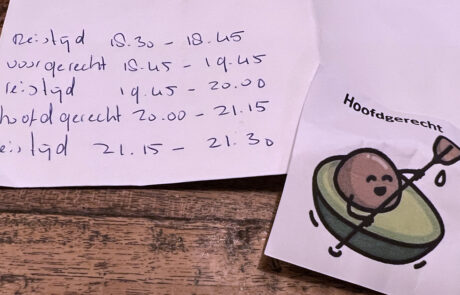 Reistijd 18.30 - 18.45
voorgerecht 18.45 - 19.45
reistijd 19.45 - 20.00
hoofdgerecht 20.00 - 21.15
eistijd 21.15 - 21.30
Hoofdgerecht